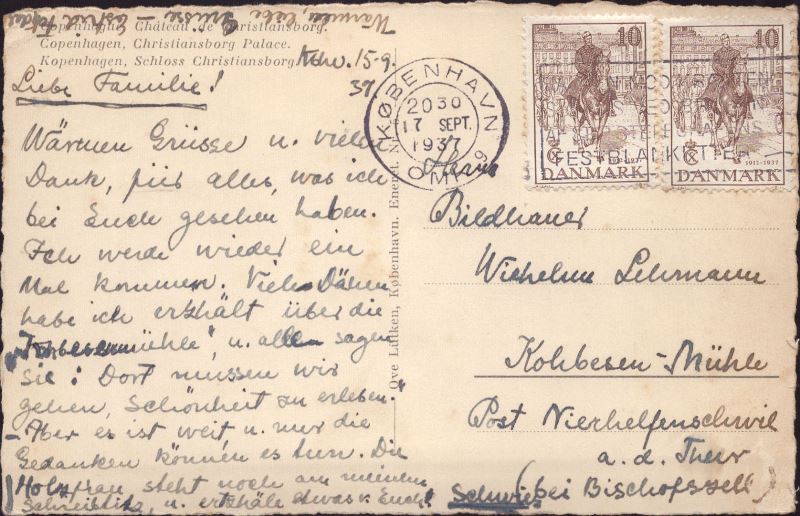 Wärmen, liebe Grüsse — Astrid
Copenhague, Château de Christiansborg.
Copenhagen, Christiansborg Palace.
Kopenhagen, Schloss Christiansborg.
Kbhv. 15-9.
37.
Liebe Familie!
Wärmen Grüsse u. vielen
Dank, für alles, was ich
bei Euch gesehen haben.
Ich werde wieder ein
Mal kommen. Viele Dänen
habe ich erzhält über die
mühle", u. allen sagen
sie: Dort mussen wir
gehen, Schönheit zu erleben."
- Aber es ist weit u. nur die
Gedanken können es tun. Die
Holzfrau steht noch am meinem
u. erzhäle etwas v. Euch!
Ove Laŭken, København. Eneret.
KØBENHAVN
2030
17 SEPT.
1937
OMK 9
10
1912-1937
DANMARK
10
1912-1937
DANMARK
FESTBLANKETTER
Herrn
Bildhauer
Wilhelm Lehmann
Kohbesen-Mühle
Post Nierhelfenschwil
a. d. Thur
(bei Bischofszell)
Schweiz